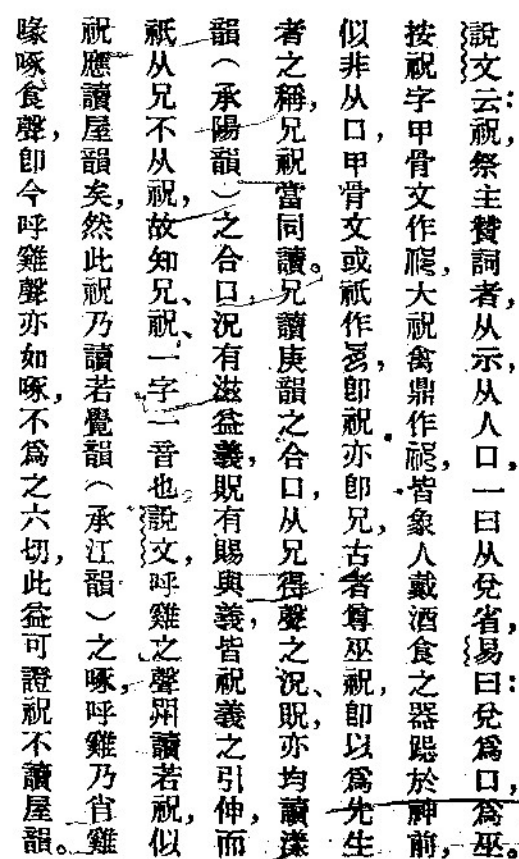 說文云：祝，祭主贊詞者，从示，从人口，一曰从兌省，易曰：兌爲口，爲巫。
按祝字甲骨文作，大祝禽鼎作，皆象人戴酒食之器跽於神前，
似非从口，甲骨文或祇作，卽祝亦卽兄，古者尊巫祝，卽以爲先生
者之稱，兄祝當同讀。兄讀庚韻之合口，从兄得聲之況、貺，亦均讀漾
韻（承陽韻）之合口，況有滋益義，貺有賜與義，皆祝義之引伸，而
祇从兄不从祝，故知兄、祝、一字一音也。說文，呼雞之聲喌讀若祝，似
祝應讀屋韻矣，然此祝乃讀若覺韻（承江韻）之啄，呼雞乃肖雞
喙啄食聲，卽今呼雞聲亦如啄，不爲之六切，此益可證祝不讀屋韻。